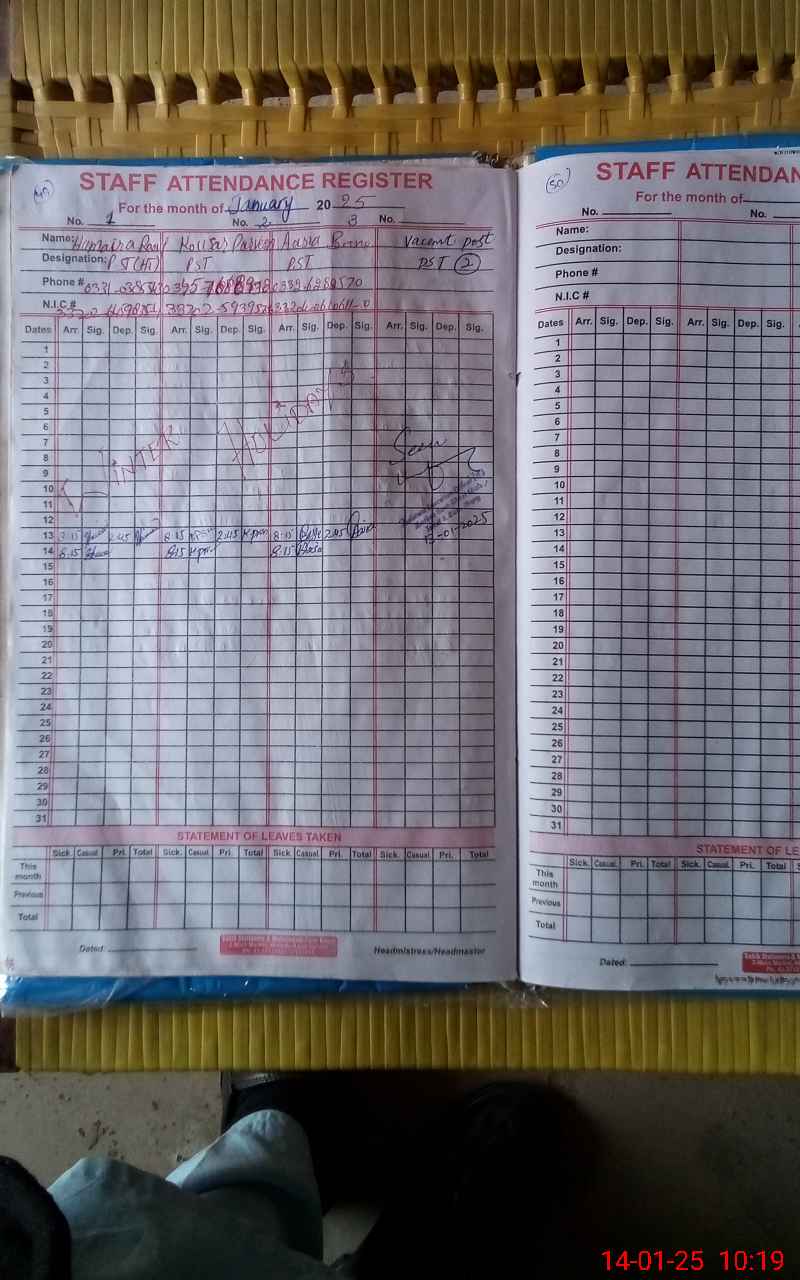 STAFF ATTENDANCE REGISTER
For the month of January 2025
No. 1 No. 2 3 No.
Name: Kousar Parveen Asma Vacant post
Designation: PST PST PST 2
Phone #
N.I.C #
Dates Arr. Sig. Dep. Sig. Arr. Sig. Dep. Sig. Arr. Sig. Dep. Sig. Arr. Sig. Dep. Sig.
1
2
3
4
5
6
7
8
9
10
11
12
13 8:15 2:45 8:15 2:45 8:15 2:45
14 8:15 8:15 8:15
15
16
17
18
19
20
21
22
23
24
25
26
27
28
29
30
31
WINTER HOLIDAYS
Seen
13-01-2025
STATEMENT OF LEAVES TAKEN
Sick. Casual. Pri. Total Sick. Casual. Pri. Total Sick. Casual. Pri. Total Sick. Casual. Pri. Total
This month
Previous
Total
Dated: Headmistress/Headmaster
50
STAFF ATTENDAN
For the month of
No. No.
Name:
Designation:
Phone #
N.I.C #
Dates Arr. Sig. Dep. Sig. Arr. Sig. Dep. Sig.
1
2
3
4
5
6
7
8
9
10
11
12
13
14
15
16
17
18
19
20
21
22
23
24
25
26
27
28
29
30
31
STATEMENT OF LE
Sick. Casual. Pri. Total Sick. Casual. Pri. Total S
This month
Previous
Total
Dated:
14-01-25 10:19